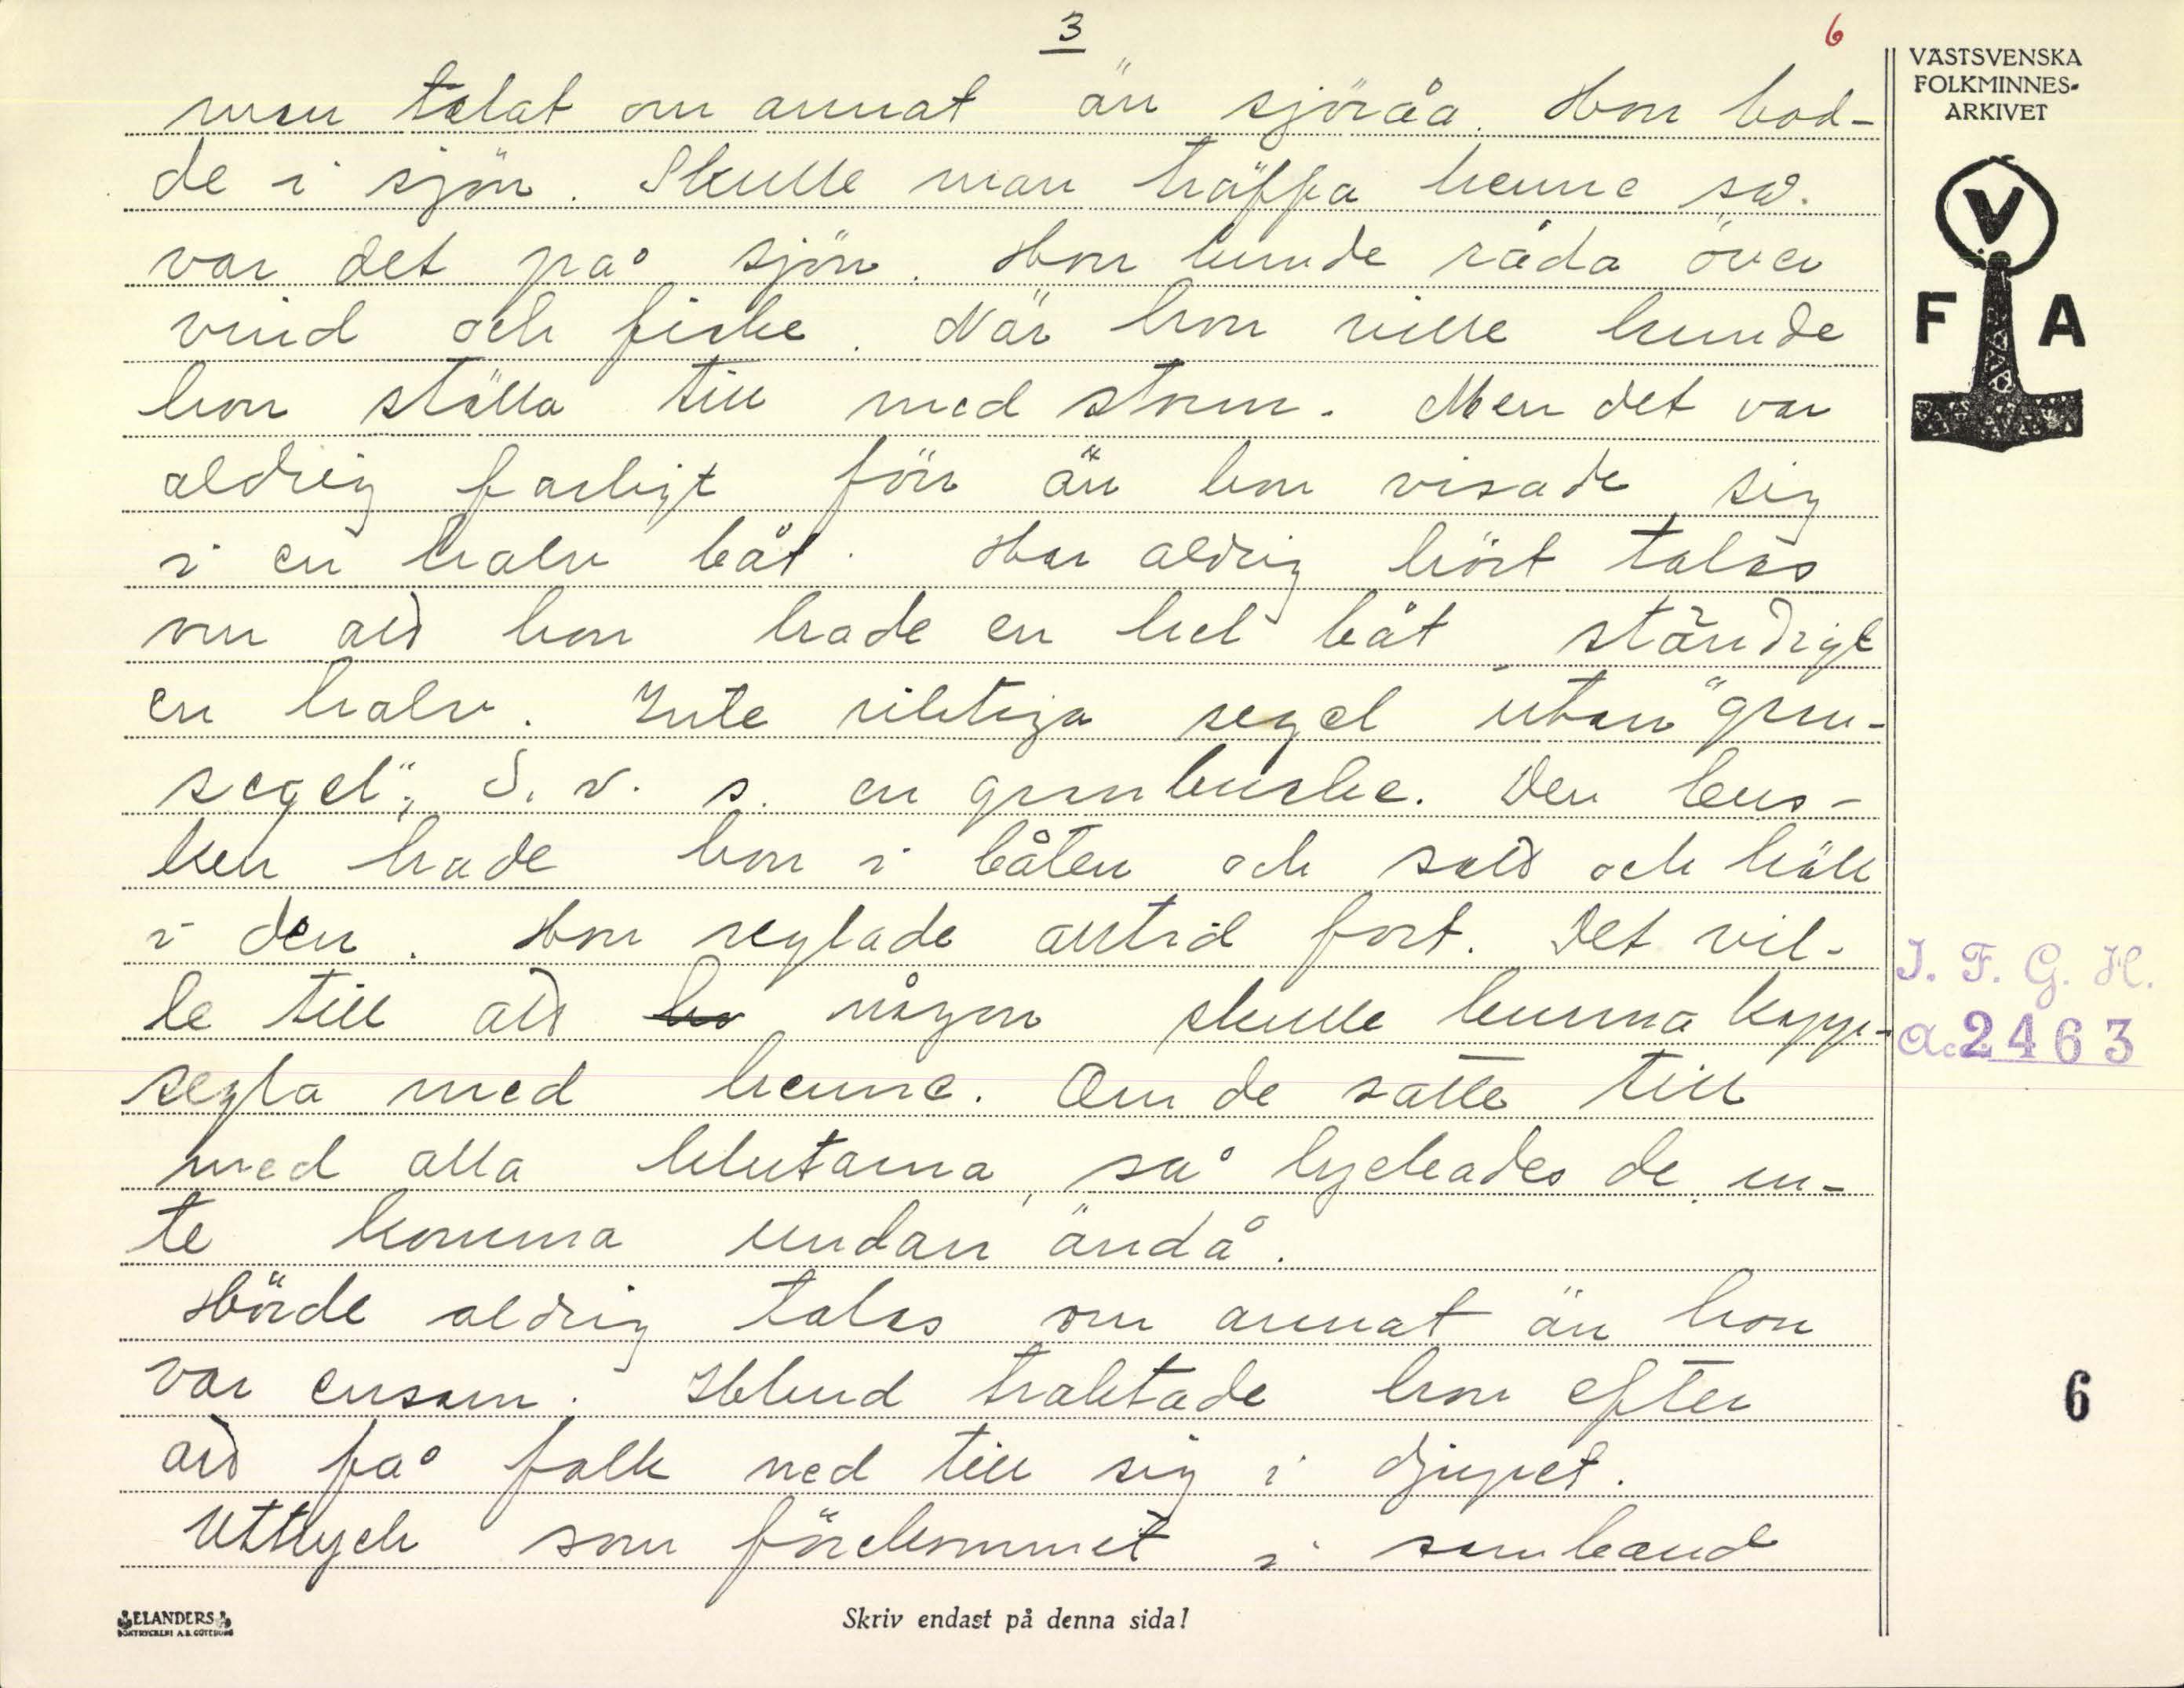 3
6
man talat om annat än sjöråa. Hon bod-
de i sjön. Skulle man träffa henne så
var det på sjön. Hon kunde råda över
vind och fiske. När hon ville kunde
hon ställa till med storm. Men det var
aldrig farligt förr än hon visade sig
i en halv båt. Har aldrig hört talas
om att hon hade en hel båt, ständigt
en halv. Inte riktiga segel utan "gran-
segel", d. v. s. en granbuske. Den bus-
ken hade hon i båten och satt och höll
i den. Hon seglade alltid fort. Det vil-
le till att ho någon skulle kunna kapp-
segla med henne. Om de satte till
med alla klutarna, så lyckades de in-
te komma undan ändå.
Hörde aldrig talas om annat än hon
var ensam. Ibland traktade hon efter
att få folk ned till sig i djupet.
Uttryck som förekommit i samband
VÄSTSVENSKA
FOLKMINNES-
ARKIVET
V
F A
I. F. G. H.
Acc. 2463
6
ELANDERS
BOKTRYCKERI A.B. GÖTEBORG
Skriv endast på denna sida!